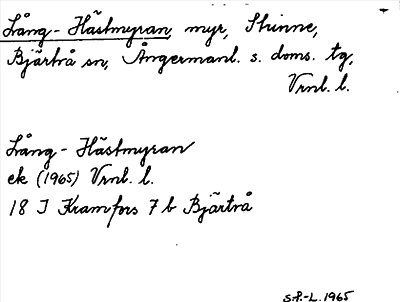 Lång-Hästmyran, myr, Skinne,
Bjärtrå sn, Ångermanl. s. doms. tg,
Vrnl. l.
Lång-Hästmyran
ek (1965) Vrnl. l.
18 I Kramfors 7 b Bjärtrå
S.P.-L. 1965